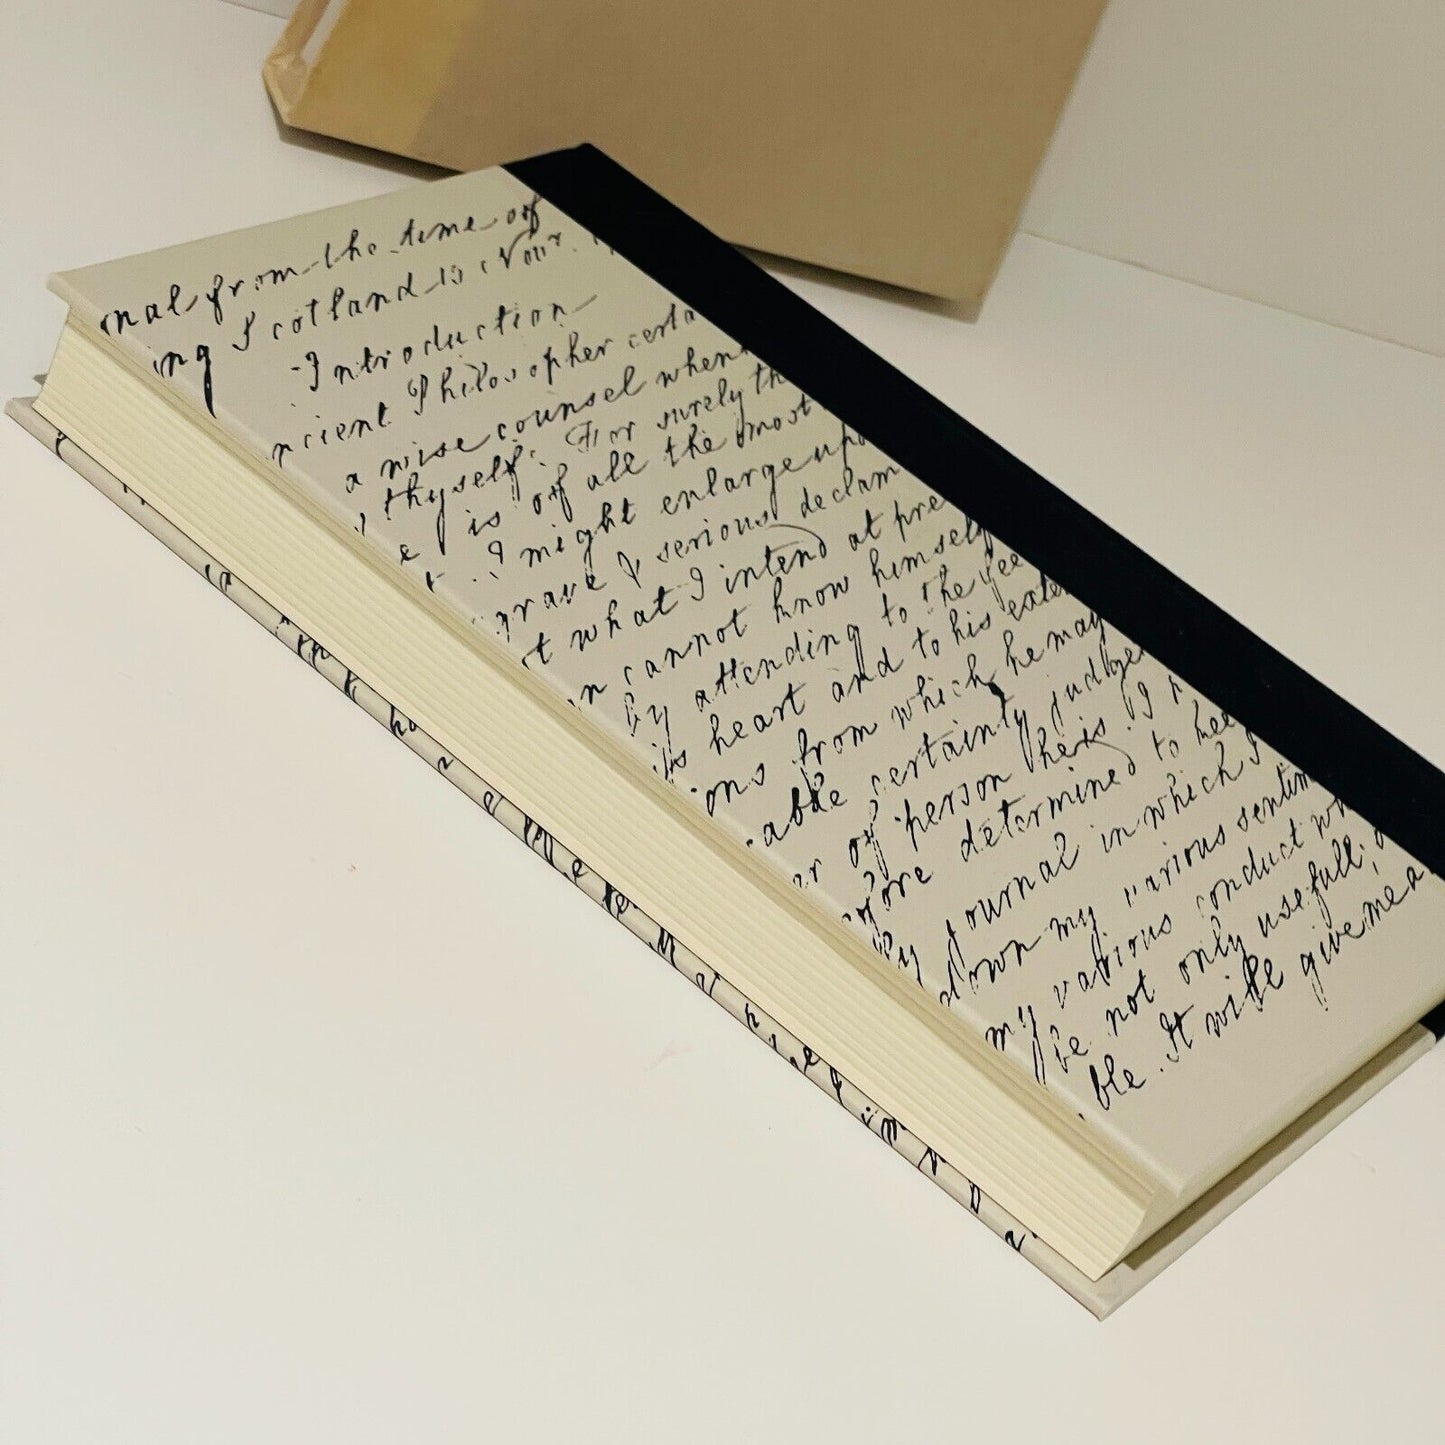 nal from the time of
ing Scotland 15 Novr.
Introduction
ncient Philosopher certa
a wise counsel when
thyself. For surely th
e is of all the most
I might enlarge upo
grave & serious declam
t what I intend at pre
n cannot know himself
by attending to the fee
is heart and to his exte
ons from which he may
able certainty judge
er of person he is. I
fore determined to kee
ly journal in which I
down my various sentim
my various conduct wh
be not only usefull;
ble. It will give me a